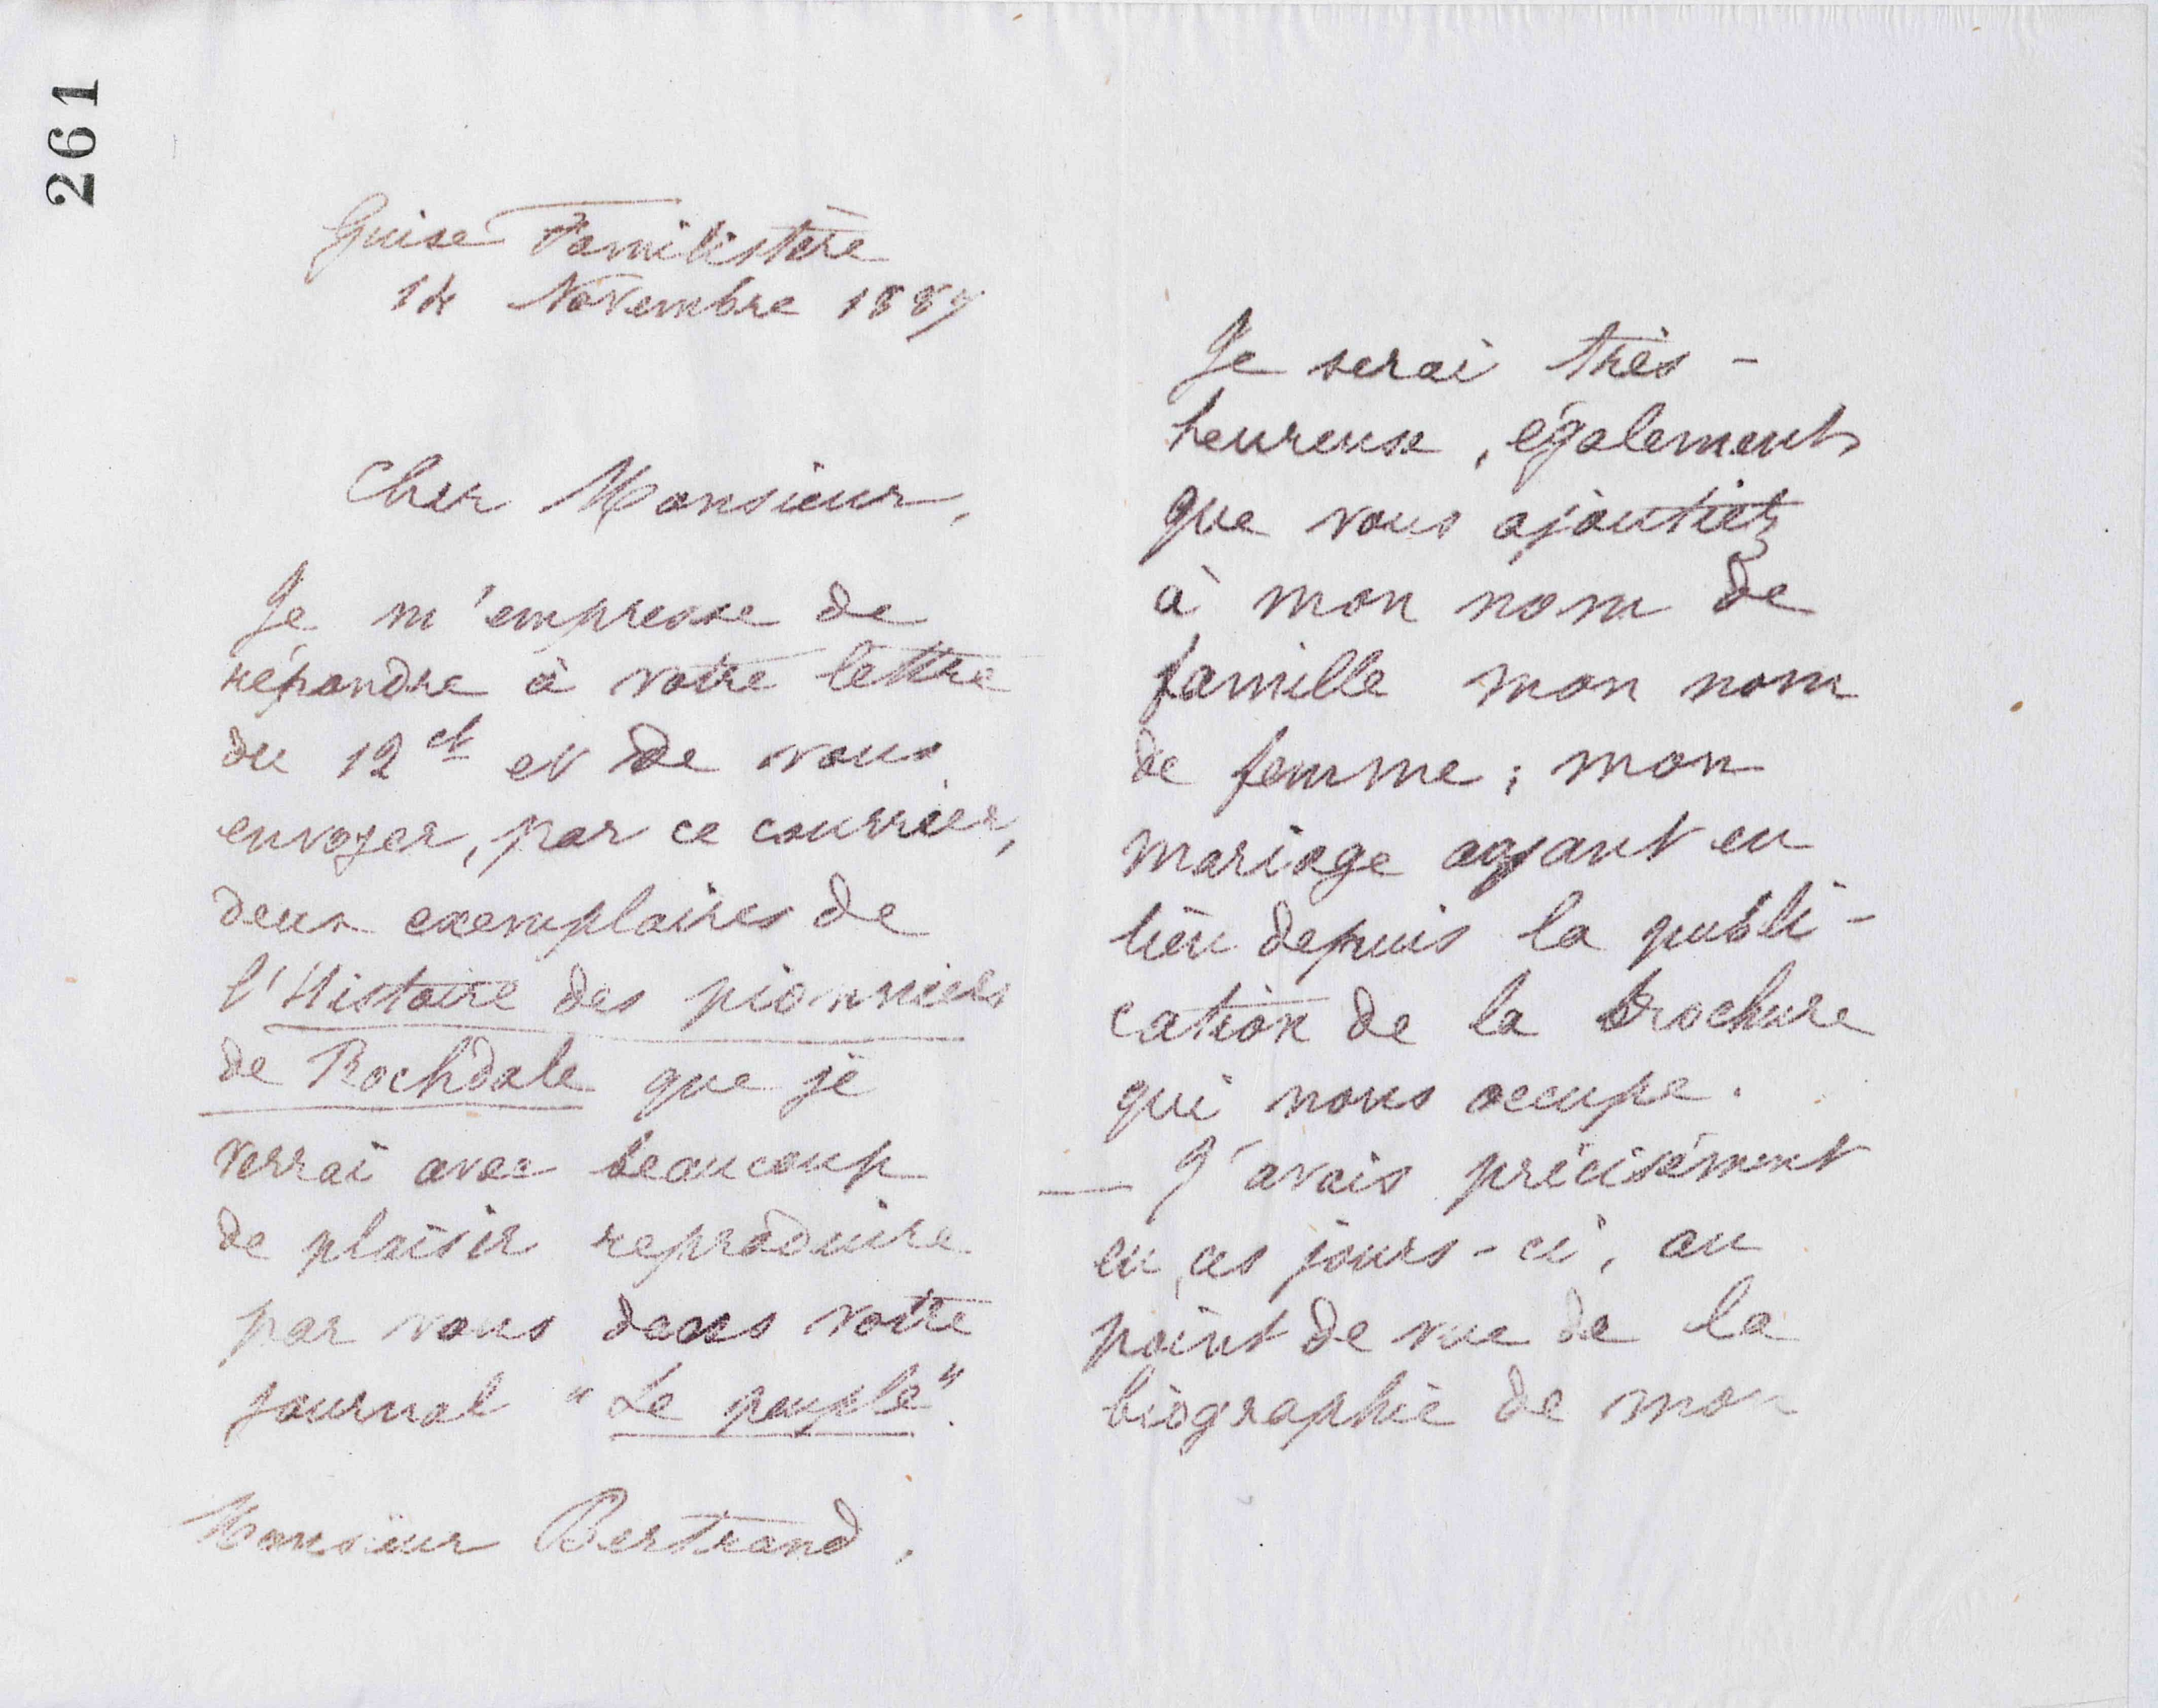 261
Guise Familistère
14 Novembre 1889
Cher Monsieur,
Je m'empresse de
répondre à votre lettre
du 12 ct et de vous
envoyer, par ce courrier,
deux exemplaires de
l'Histoire des pionniers
de Rochdale que je
verrai avec beaucoup
de plaisir reproduire
par vous dans votre
journal "Le peuple".
Monsieur Bertrand,
Je serai très-
heureuse, également
que vous ajoutiez
à mon nom de
famille mon nom
de femme; mon
mariage ayant eu
lieu depuis la publi-
cation de la brochure
qui nous occupe.
— J'avais précisément
eu, ces jours-ci, au
point de vue de la
biographie de mon